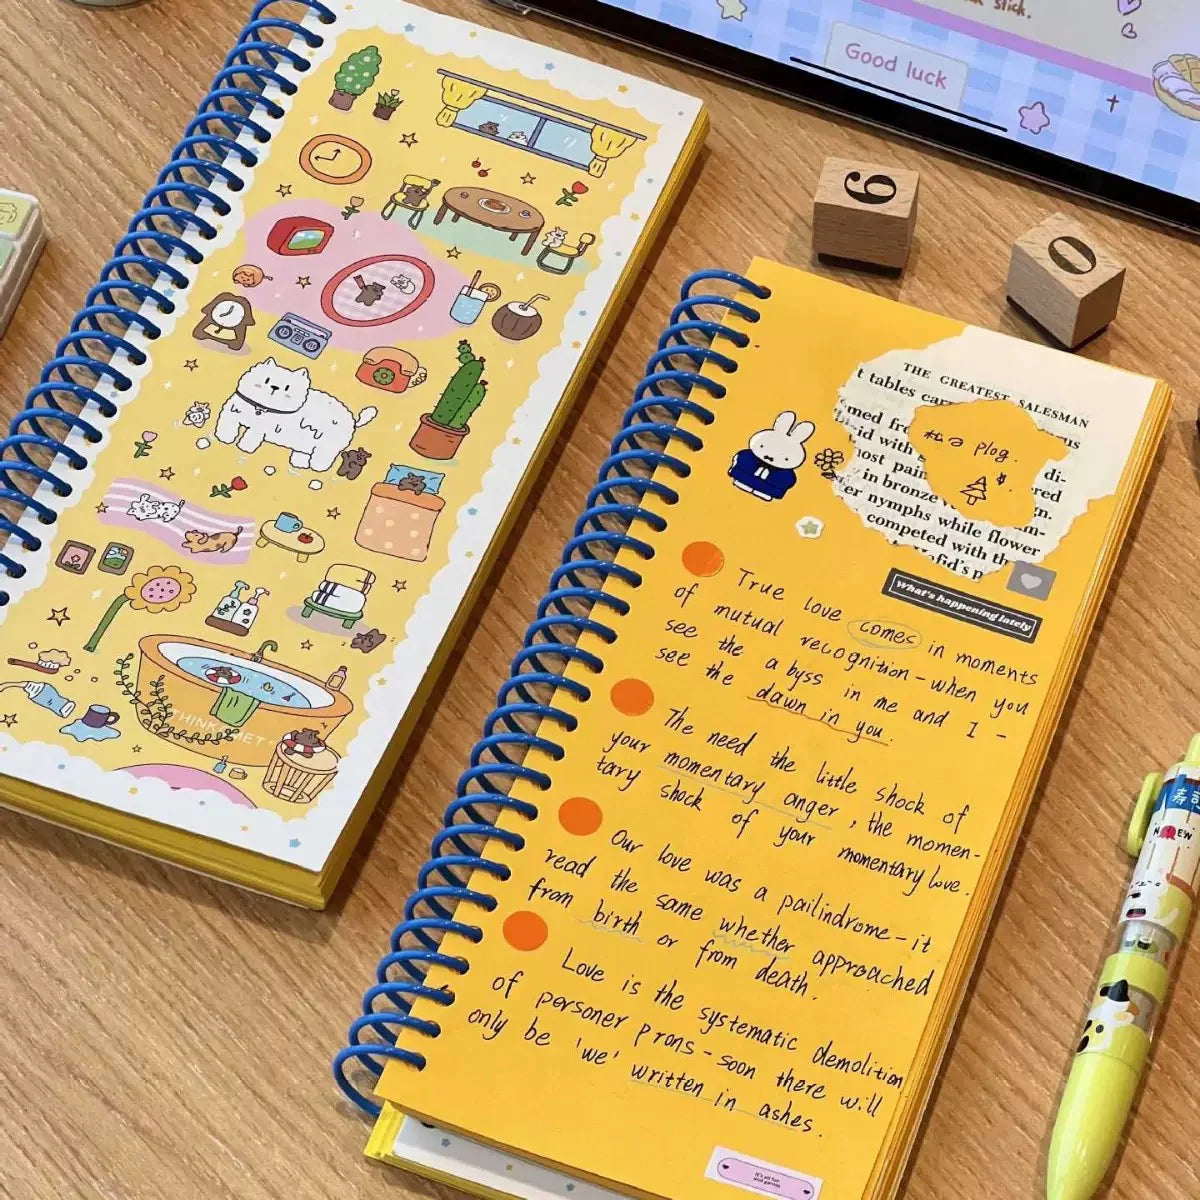 stick.
Good luck
6
0
THE GREATEST SALESMAN
t tables car
med fr
ous
id with
di-
ost pain
red
in bronze
n.
er nymphs while flower
m-
competed with th
fid's p
plog.
What's happening lately
True love comes in moments
of mutual recognition – when you
see the abyss in me and I –
see the dawn in you.
The need the little shock of
your momentary anger, the momen-
tary shock of your momentary love.
Our love was a pailindrome – it
read the same whether approached
from birth or from death.
Love is the systematic demolition
of personer prons – soon there will
only be 'we' written in ashes.
THINK